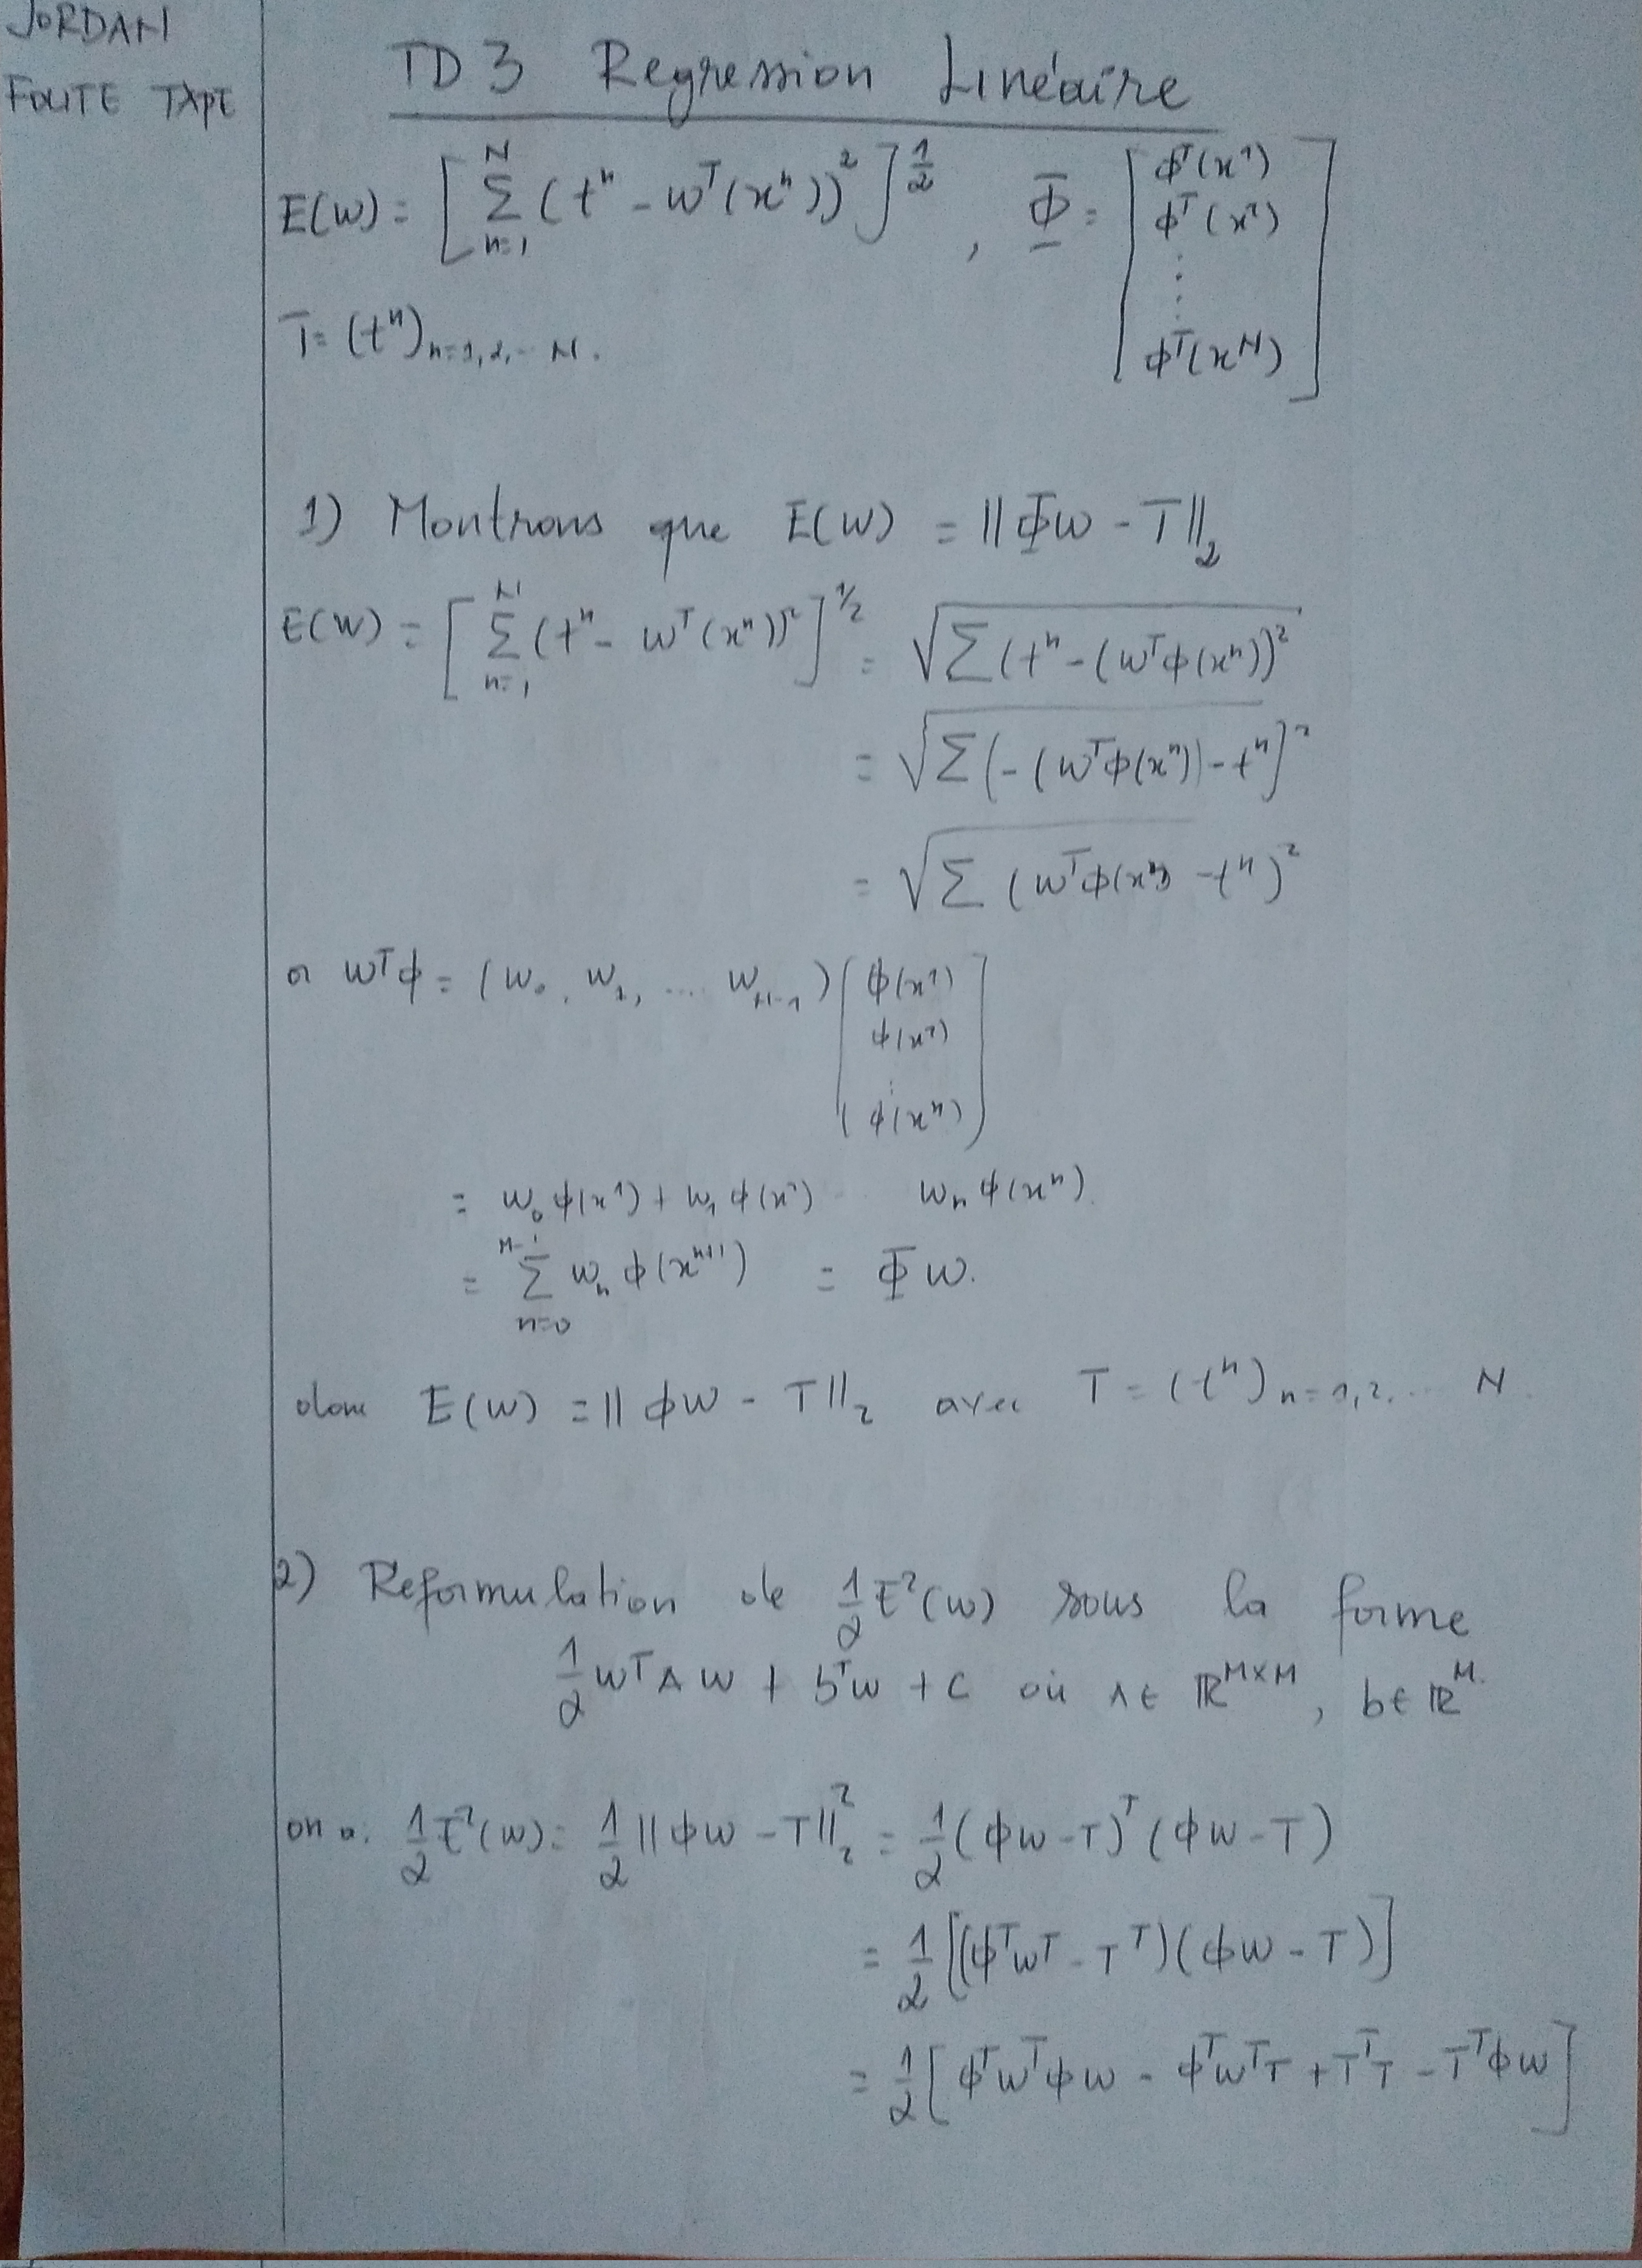 JORDAN
FOUTE TAPE
TD 3 Regression Linéaire
E(W) = [ Σ_{n=1}^{N} (tⁿ - wᵀ(xⁿ))² ]^{1/2} , Φ = [ ϕᵀ(x¹)
ϕᵀ(x²)
⋮
ϕᵀ(xᴺ) ]
T = (tⁿ)_{n=1,2,... N} .
1) Montrons que E(W) = ||Φw - T||₂
E(W) = [ Σ_{n=1}^{N} (tⁿ - wᵀ(xⁿ))² ]^{1/2} = √Σ(tⁿ - (wᵀϕ(xⁿ))²
= √Σ(-(wᵀϕ(xⁿ)) - tⁿ]²
= √Σ (wᵀϕ(xⁿ) - tⁿ)²
or wᵀϕ = (w₀, w₁, ... w_{N-1}) ( ϕ(x¹)
ϕ(x²)
⋮
ϕ(xⁿ) )
= w₀ϕ(x¹) + w₁ϕ(x²) ... wₙϕ(xⁿ).
= Σ_{n=0}^{N-1} wₙ ϕ(xⁿ⁺¹) = Φw.
donc E(W) = ||ϕW - T||₂ avec T = (tⁿ)_{n=1,2,... N}.
2) Reformulation de ½E²(w) sous la forme
½wᵀAw + bᵀw + c où A∈ ℝ^{M×M}, b∈ℝ^{M}.
on a: ½E²(w) = ½||ϕw - T||₂² = ½(ϕw - T)ᵀ(ϕw - T)
= ½[(ϕᵀwᵀ - Tᵀ)(ϕw - T)]
= ½[ϕᵀwᵀϕw - ϕᵀwᵀT + TᵀT - Tᵀϕw]